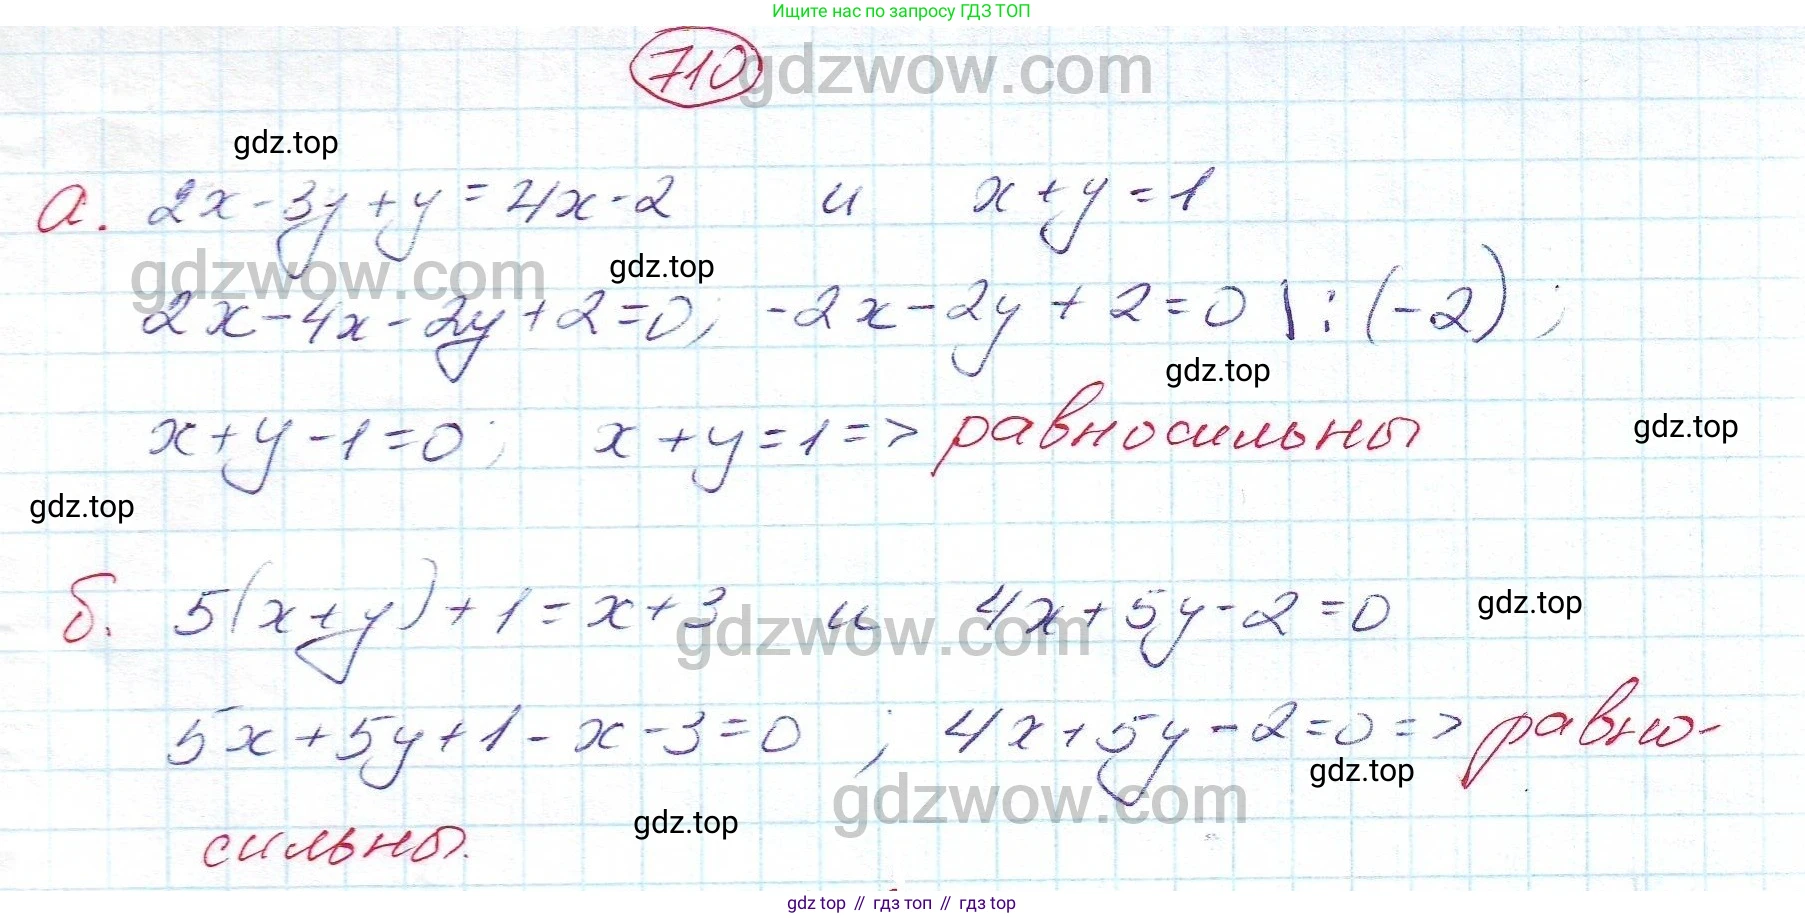 Ищите нас по запросу ГДЗ ТОП
710
gdzwow.com
gdz.top
а. 2x-3y+y=4x-2 и x+y=1
gdzwow.com gdz.top
2x-4x-2y+2=0; -2x-2y+2=0 |:(-2);
gdz.top
x+y-1=0; x+y=1=> равносильны
gdz.top
gdz.top
б. 5(x+y)+1=x+3 и 4x+5y-2=0
gdz.top
gdzwow.com
5x+5y+1-x-3=0; 4x+5y-2=0=> равно-
gdz.top
gdzwow.com
gdz.top
сильны.
gdz top // гдз топ // gdz top